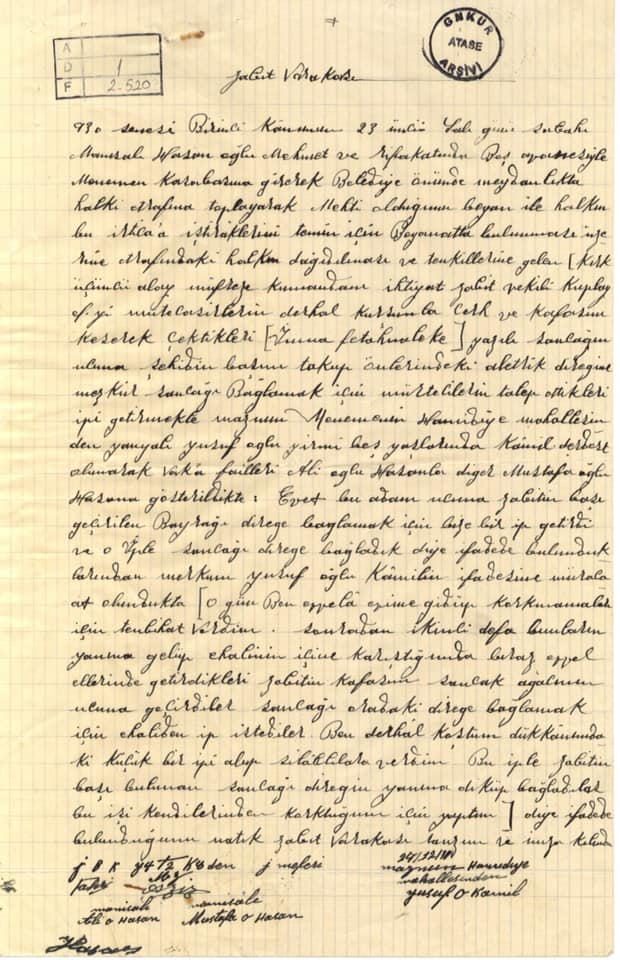 GNKUR
ATASE
ARŞİVİ
A
D 1
F 2-520
Zabıt Varakası
930 senesi Birinci Kânunun 23 üncü Salı günü sabahı
Manisalı Hasan oğlu Mehmet ve refakatında Beş avanesiyle
Menemen Kasabasına girerek Belediye önünde meydanlıkta
halkı etrafına toplayarak Mehti olduğunu beyan ile halkın
bu irticaa iştiraklerini temin için Beyanatta bulunması üze
rine etrafındaki halkın dağıdılması ve tenkillerine gelen [Kırk
üçüncü alay müfreze kumandanı ihtiyat zabit vekili Kuplay
ef. yi mütecasirlerin derhal kurşunla Cerh ve kafasını
keserek Çektikleri [İnna fetahnaleke] yazılı sancağın
ucuna şehidin başını takup önlerindeki elektrik direğine
mezkür sancağı Bağlamak için mürtecilerin talep ettikleri
ipi getirmekle maznun Menemenin Hamidiye mahallesin
den yanyalı yusuf oğlu yirmi beş yaşlarında Kâmil derdest
olunarak vak'a failleri Ali oğlu Hasanla diğer Mustafa oğlu
Hasana gösterildikte: Evet bu adam ucuna zabitin başı
geçirilen Bayrağı direğe bağlamak için bize bir ip getirdi
ve o İple sancağı direğe bağladık diye ifadede bulunduk
larından merkum yusuf oğlu Kâmilin ifadesine müraca
at olundukta [o gün Ben evvelâ evime gidip korkmamaları
için tenbihat verdim. sonradan ikinci defa bunların
yanına gelüp ehalinin içine karıştığımda biraz evvel
ellerinde getirdikleri zabitin kafasını sancak ağacının
ucuna geçirdiler sancağı oradaki direğe bağlamak
için ehaliden ip istediler Ben derhal koştum dükkânımda
ki küçük bir ipi alup silâhlılara verdim Bu iple zabitin
başı bulunan sancağı direğin yanına diküp bağladılar
bu işi kendilerinden korktuğum için yaptım] diye ifadede
bulunduğunu natık zabıt Varakası tanzim ve imza kılındı
24/12/
maznun Hamidiye
mahallesinden
yusuf O Kâmil
manisalı
Ali o Hasan
manisalı
Mustafa o Hasan
Hasan